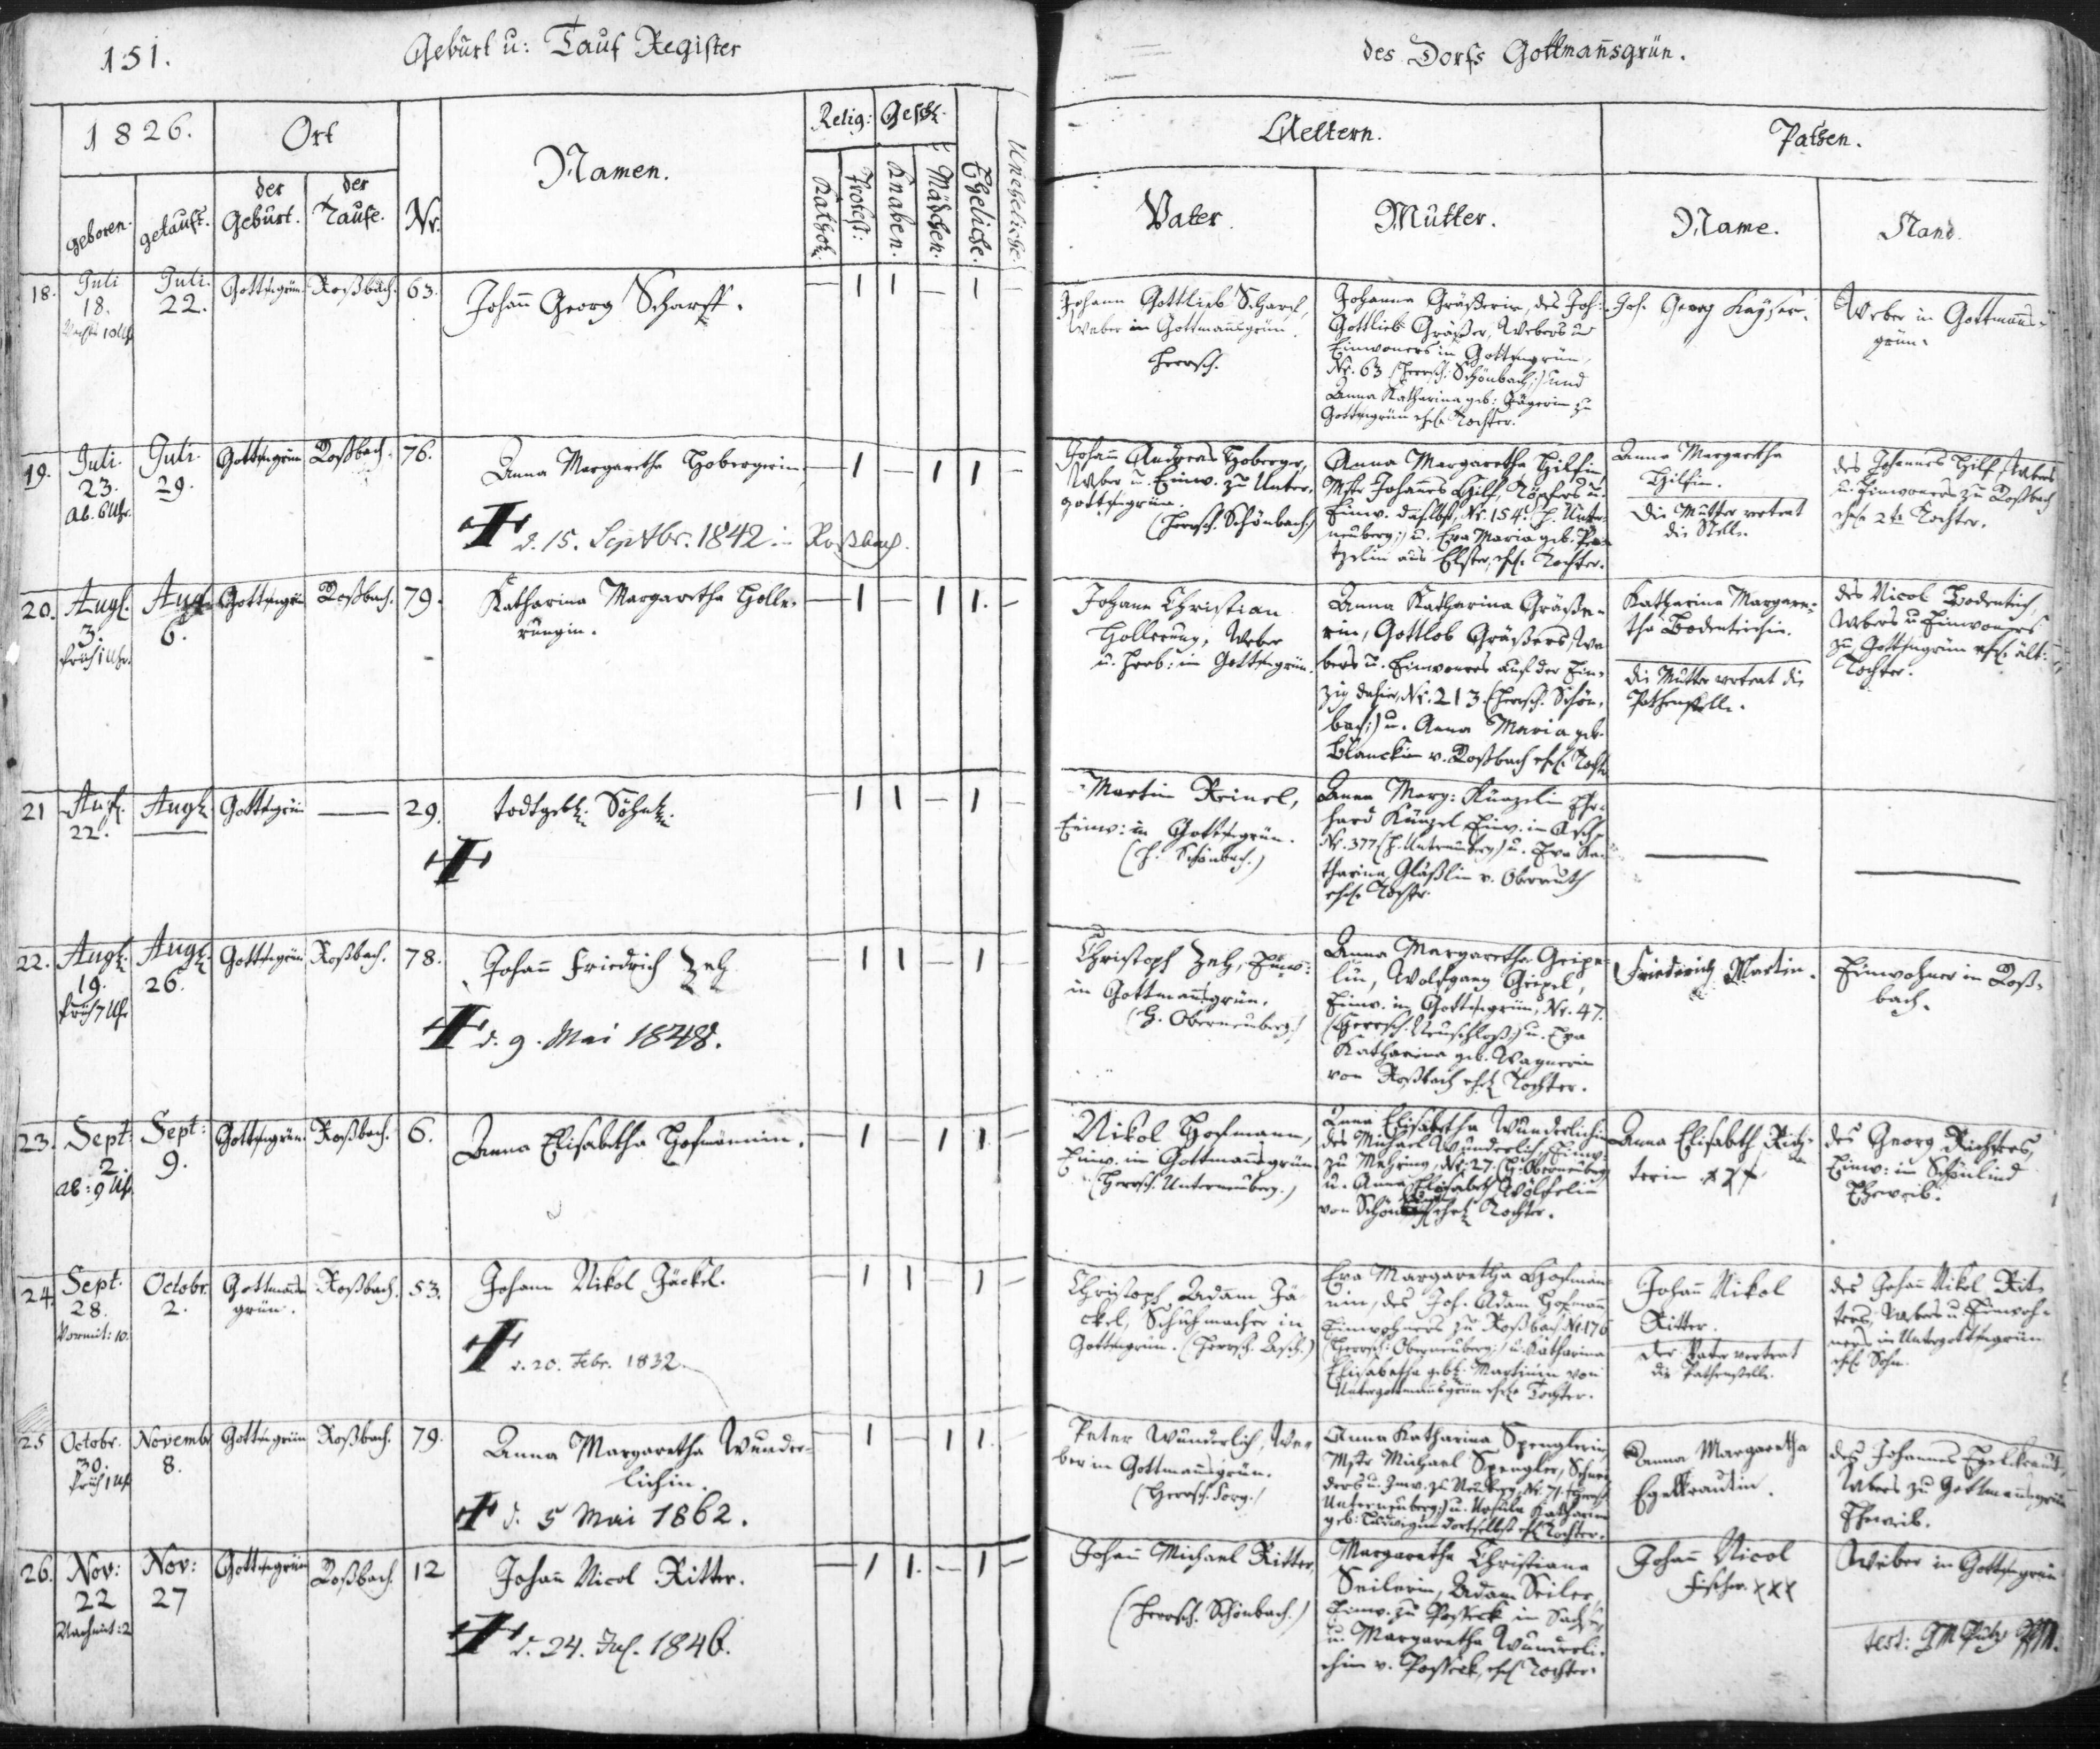 151.
Geburt u: Tauf Register
des Dorfs Gottmansgrün.
1826.
Ort
Namen.
Relig:
Geschl.
Aeltern.
Pathen.
geboren.
getauft.
der Geburt.
der Taufe.
Nr.
Kathol.
Protest:
Knaben.
Mädchen.
Eheliche.
Uneheliche.
Vater.
Mutter.
Name.
Stand.
18.
Juli
18.
Nachts 10 Uhr
Juli.
22.
Gottmgrün.
Roßbach.
63.
Johann Georg Scharff.
— 1 1 — 1
Johann Gottlieb Scharf,
Weber in Gottmannsgrün.
Herrsch.
Johanna Gräßerin, des Joh:
Gottlieb Gräßer, Webers u
Einwoners in Gottmgrün,
Nr. 63 (Herrsch: Schönbach;) und
Anna Katharina geb: Jägerin zu
Gottmgrün ehel. Tochter.
Joh. Georg Kayser.
Weber in Gottmanns-
grün.
19.
Juli.
23.
Ab. 6 Uhr.
Juli.
29.
Gottmgrün
Roßbach.
76.
Anna Margaretha Hobergerin
d. 15. Septbr. 1842 in Roßbach.
— 1 — 1 1 —
Johann Andreas Hoberger,
Weber u. Einw. zu Unter-
gottmgrün.
(Herrsch. Schönbach)
Anna Margaretha Hilfin
Mstr Johannes Hilf, Töpfers u.
Einw. daselbst, Nr. 154. H. Unter-
neuberg;) u. Eva Maria geb.
aus Elster, ehel. Tochter.
Anna Margaretha
Hilfin.
Die Mutter vertrat
die Stelle.
des Johannes Hilf, Webers
u. Einwoners zu Roßbach
ehel. 2te Tochter.
20.
Augs.
3.
Früh 1 Uhr.
Aug.
6.
Gottmgrün
Roßbach.
79.
Katharina Margaretha Holle-
rungin.
— 1 — 1 1. —
Johann Christian
Hollerung, Weber
u. Herb: in Gottmgrün.
Anna Katharina Gräße-
rin, Gottlob Gräßers, We-
bers u. Einwoners auf der Ein-
zig dahier, Nr. 213 (Herrsch. Schön-
bach;) u. Anna Maria geb.
Blanckin v. Roßbach ehel. Tochter
Katharina Margare-
tha Bodenteichin.
die Mutter vertrat die
Pathenstelle.
des Nicol Bodenteich,
Webers u Einwoners
zu Gottmgrün ehel. ält:
Tochter.
21
Augs.
22.
Augs.
Gottmgrün
—
29.
todtgeb. Söhnl.
— 1 1 — 1 —
Martin Reinel,
Einw: in Gottmgrün.
(H. Schönbach.)
Anna Marg: Künzelin
Künzel Einw. in Asch
Nr. 377 (H. Unterneuberg) u. Eva Ka-
tharina Gläßlin v. Oberreuth
ehel. Tochter.
—
—
22.
Augs.
19.
Früh 7 Uhr
Augs.
26.
Gottmgrün
Roßbach.
78.
Johann Friedrich Zeh
d. 9. Mai 1848.
— 1 1 — 1 —
Christoph Zeh, Einw:
in Gottmannsgrün.
(H. Oberneuberg.)
Anna Margaretha Geipe-
lin, Wolfgang Geipel,
Einw. in Gottmgrün, Nr. 47.
(Herrsch. Neuschloß;) u. Eva
Katharina geb. Wagnerin
von Roßbach ehel. Tochter.
Friedrich Martin.
Einwohner in Roß-
bach.
23.
Sept:
2.
Ab: 9 Uhr.
Sept:
9.
Gottmgrün.
Roßbach.
6.
Anna Elisabetha Hofmannin.
— 1 — 1 1. —
Nikol Hofmann,
Einw. in Gottmannsgrün
(Herrsch. Unterneuberg.)
Anna Elisabetha Wunderlichin
des Michael Wunderlich, Einw:
zu Mähring, Nr: 27. (H. Oberneuberg
u. Anna Elisabeth Wölfelin
von ehel. Tochter.
Anna Elisabeth Rich-
terin xxx
des Georg Richters,
Einw: in Schönlind
Eheweib.
24.
Sept.
28.
Vormit: 10.
Octobr.
2.
Gottmanns
grün.
Roßbach.
53.
Johann Nikol Jäckel.
d. 20. Febr. 1832
— 1 1 — 1 —
Christoph Adam Jä-
ckel, Schuhmacher in
Gottmgrün. (Herrsch. Asch.)
Eva Margaretha Hofmän-
nin, des Joh. Adam Hofmann
Einwohners zu Roßbach Nr. 176
(Herrsch: Oberneuberg;) u. Katharina
Elisabetha geb. Martinin von
Untergottmansgrün ehel. Tochter.
Johann Nikol
Ritter.
Der Vater vertrat
die Pathenstelle.
des Johann Nikol Rit-
ters, Webers u. Einwoh-
ners in Untergottmgrün
ehel. Sohn.
25
Octobr.
30.
Früh 1 Uhr
Novembr
8.
Gottmgrün
Roßbach.
79.
Anna Margaretha Wunder-
lichin.
d. 5 Mai 1862.
— 1 — 1 1.
Peter Wunderlich, We-
ber in Gottmannsgrün.
(Herrsch. Sorg.)
Anna Katharina Spenglerin,
Mstr Michael Spengler, Schnei-
ders u. Inw. zu Neuberg, Nr. 71. (Herrsch
Unterneuberg;) u. Ursula Katharina
geb: Ludwigin dortselbst ehel. Tochter.
Anna Margaretha
Egelkrautin.
des Johannes Egelkraut,
Webers zu Gottmannsgrün
Eheweib.
26.
Nov:
22
Nachmit: 2
Nov:
27
Gottmgrün
Roßbach.
12
Johann Nicol Ritter.
d. 24. Jul. 1846.
— 1 1. — 1 —
Johann Michael Ritter,
(Herrsch. Schönbach.)
Margaretha Christiana
Seilerin, Adam Seiler
Einw. zu Posseck in Sachsen,
u. Margaretha Wunderli-
chin v. Posseck, ehel. Tochter.
Johann Nicol
Fischer. xxx
Weber in Gottmgrün
test: